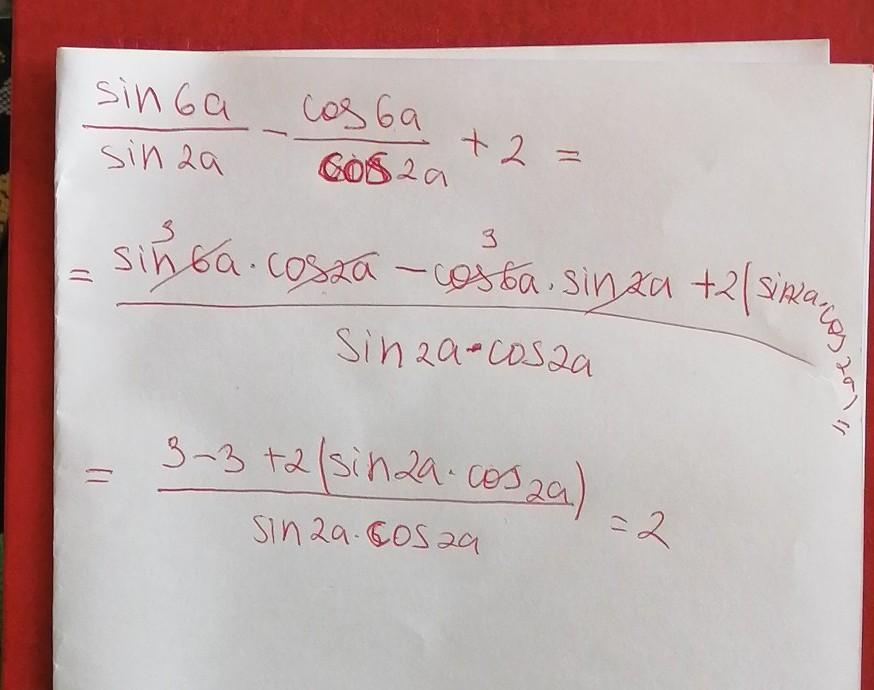 sin6a/sin2a - cos6a/cos2a + 2 =
= sin6a · cos2a - cos6a · sin2a + 2(sin2a · cos2a) =
3 3
sin2a · cos2a
= 3-3+2(sin2a · cos2a)/sin2a · cos2a = 2